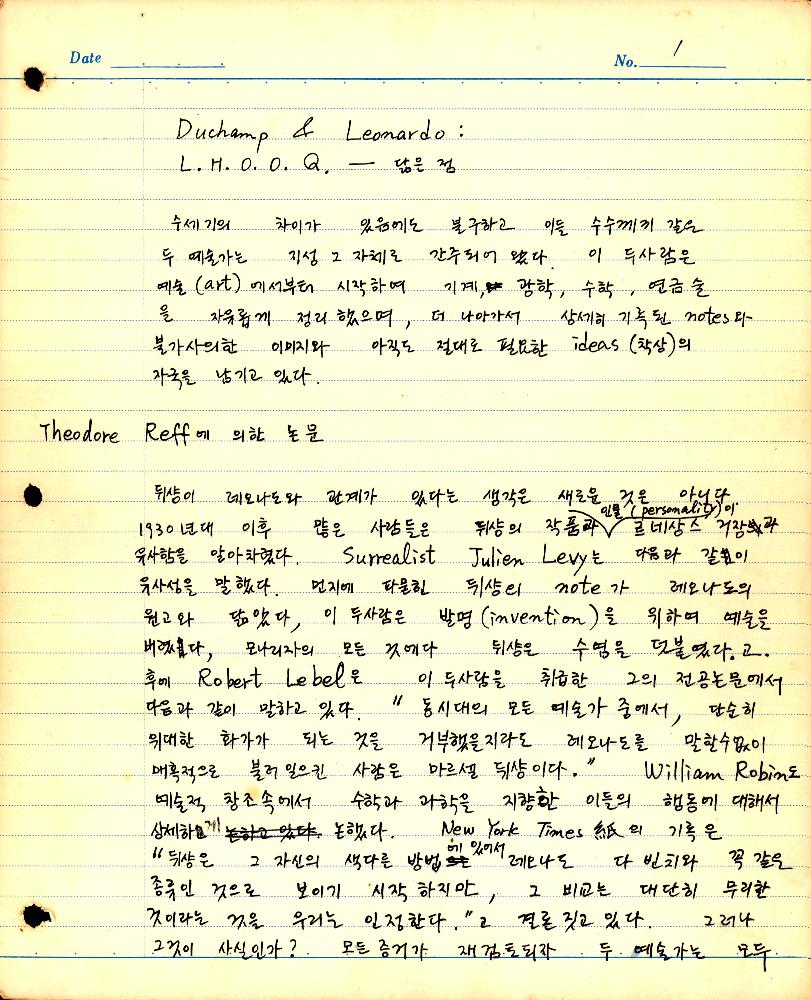 Date
No. 1
Duchamp & Leonardo :
L.H.O.O.Q. — 닮은 점
수세기의 차이가 있음에도 불구하고 이들 수수께끼 같은
두 예술가는 지성 그 자체로 간주되어 왔다. 이 두사람은
예술 (art) 에서부터 시작하여 기계, 광학, 수학, 연금술
을 자유롭게 정리했으며, 더 나아가서 상세히 기록된 notes와
불가사의한 이미지와 아직도 절대로 필요한 ideas (착상)의
자국을 남기고 있다.
Theodore Reff에 의한 논문
뒤샹이 레오나도와 관계가 있다는 생각은 새로운 것은 아니다.
인물 (personality)이
1930년대 이후 많은 사람들은 뒤샹의 작품과 르네상스 거장과
유사함을 알아차렸다. Surrealist Julien Levy는 다음과 같이
유사성을 말했다. 먼지에 파묻힌 뒤샹의 note가 레오나도의
원고와 닮았다, 이 두사람은 발명 (invention)을 위하여 예술을
버렸다, 모나리자의 모든 것에다 뒤샹은 수염을 덧붙였다.고.
후에 Robert Lebel은 이 두사람을 취급한 그의 전공논문에서
다음과 같이 말하고 있다. " 동시대의 모든 예술가 중에서, 단순히
위대한 화가가 되는 것을 거부했을지라도 레오나도를 말할수없이
매혹적으로 불러 일으킨 사람은 마르셀 뒤샹이다." William Robin도
예술적 창조속에서 수학과 과학을 지향한 이들의 행동에 대해서
상세하게 논하고 있다. 논했다. New York Times 紙의 기록은
에 있어서
"뒤샹은 그 자신의 색다른 방법 레오나도 다 빈치와 꼭 같은
종류인 것으로 보이기 시작하지만, 그 비교는 대단히 무리한
것이라는 것을 우리는 인정한다."고 결론 짓고 있다. 그러나
그것이 사실인가? 모든 증거가 재검토되자 두 예술가는 모두